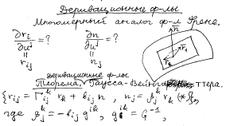 Деривационные ф-лы
Многомерный аналог ф-л Френе.
∂r_i/∂u^j = ?   ∂n/∂u^i = ?   n
r_ij   n_j   r_i
деривационные ф-лы
Теорема (Гаусса-Вейнгартена).
{ r_ij = Γ_ij^k r_k + b_ij n, n_j = β_j^k r_k (*) },
где β_j^k = -b_ij g^ik, g^ik = G^-1,